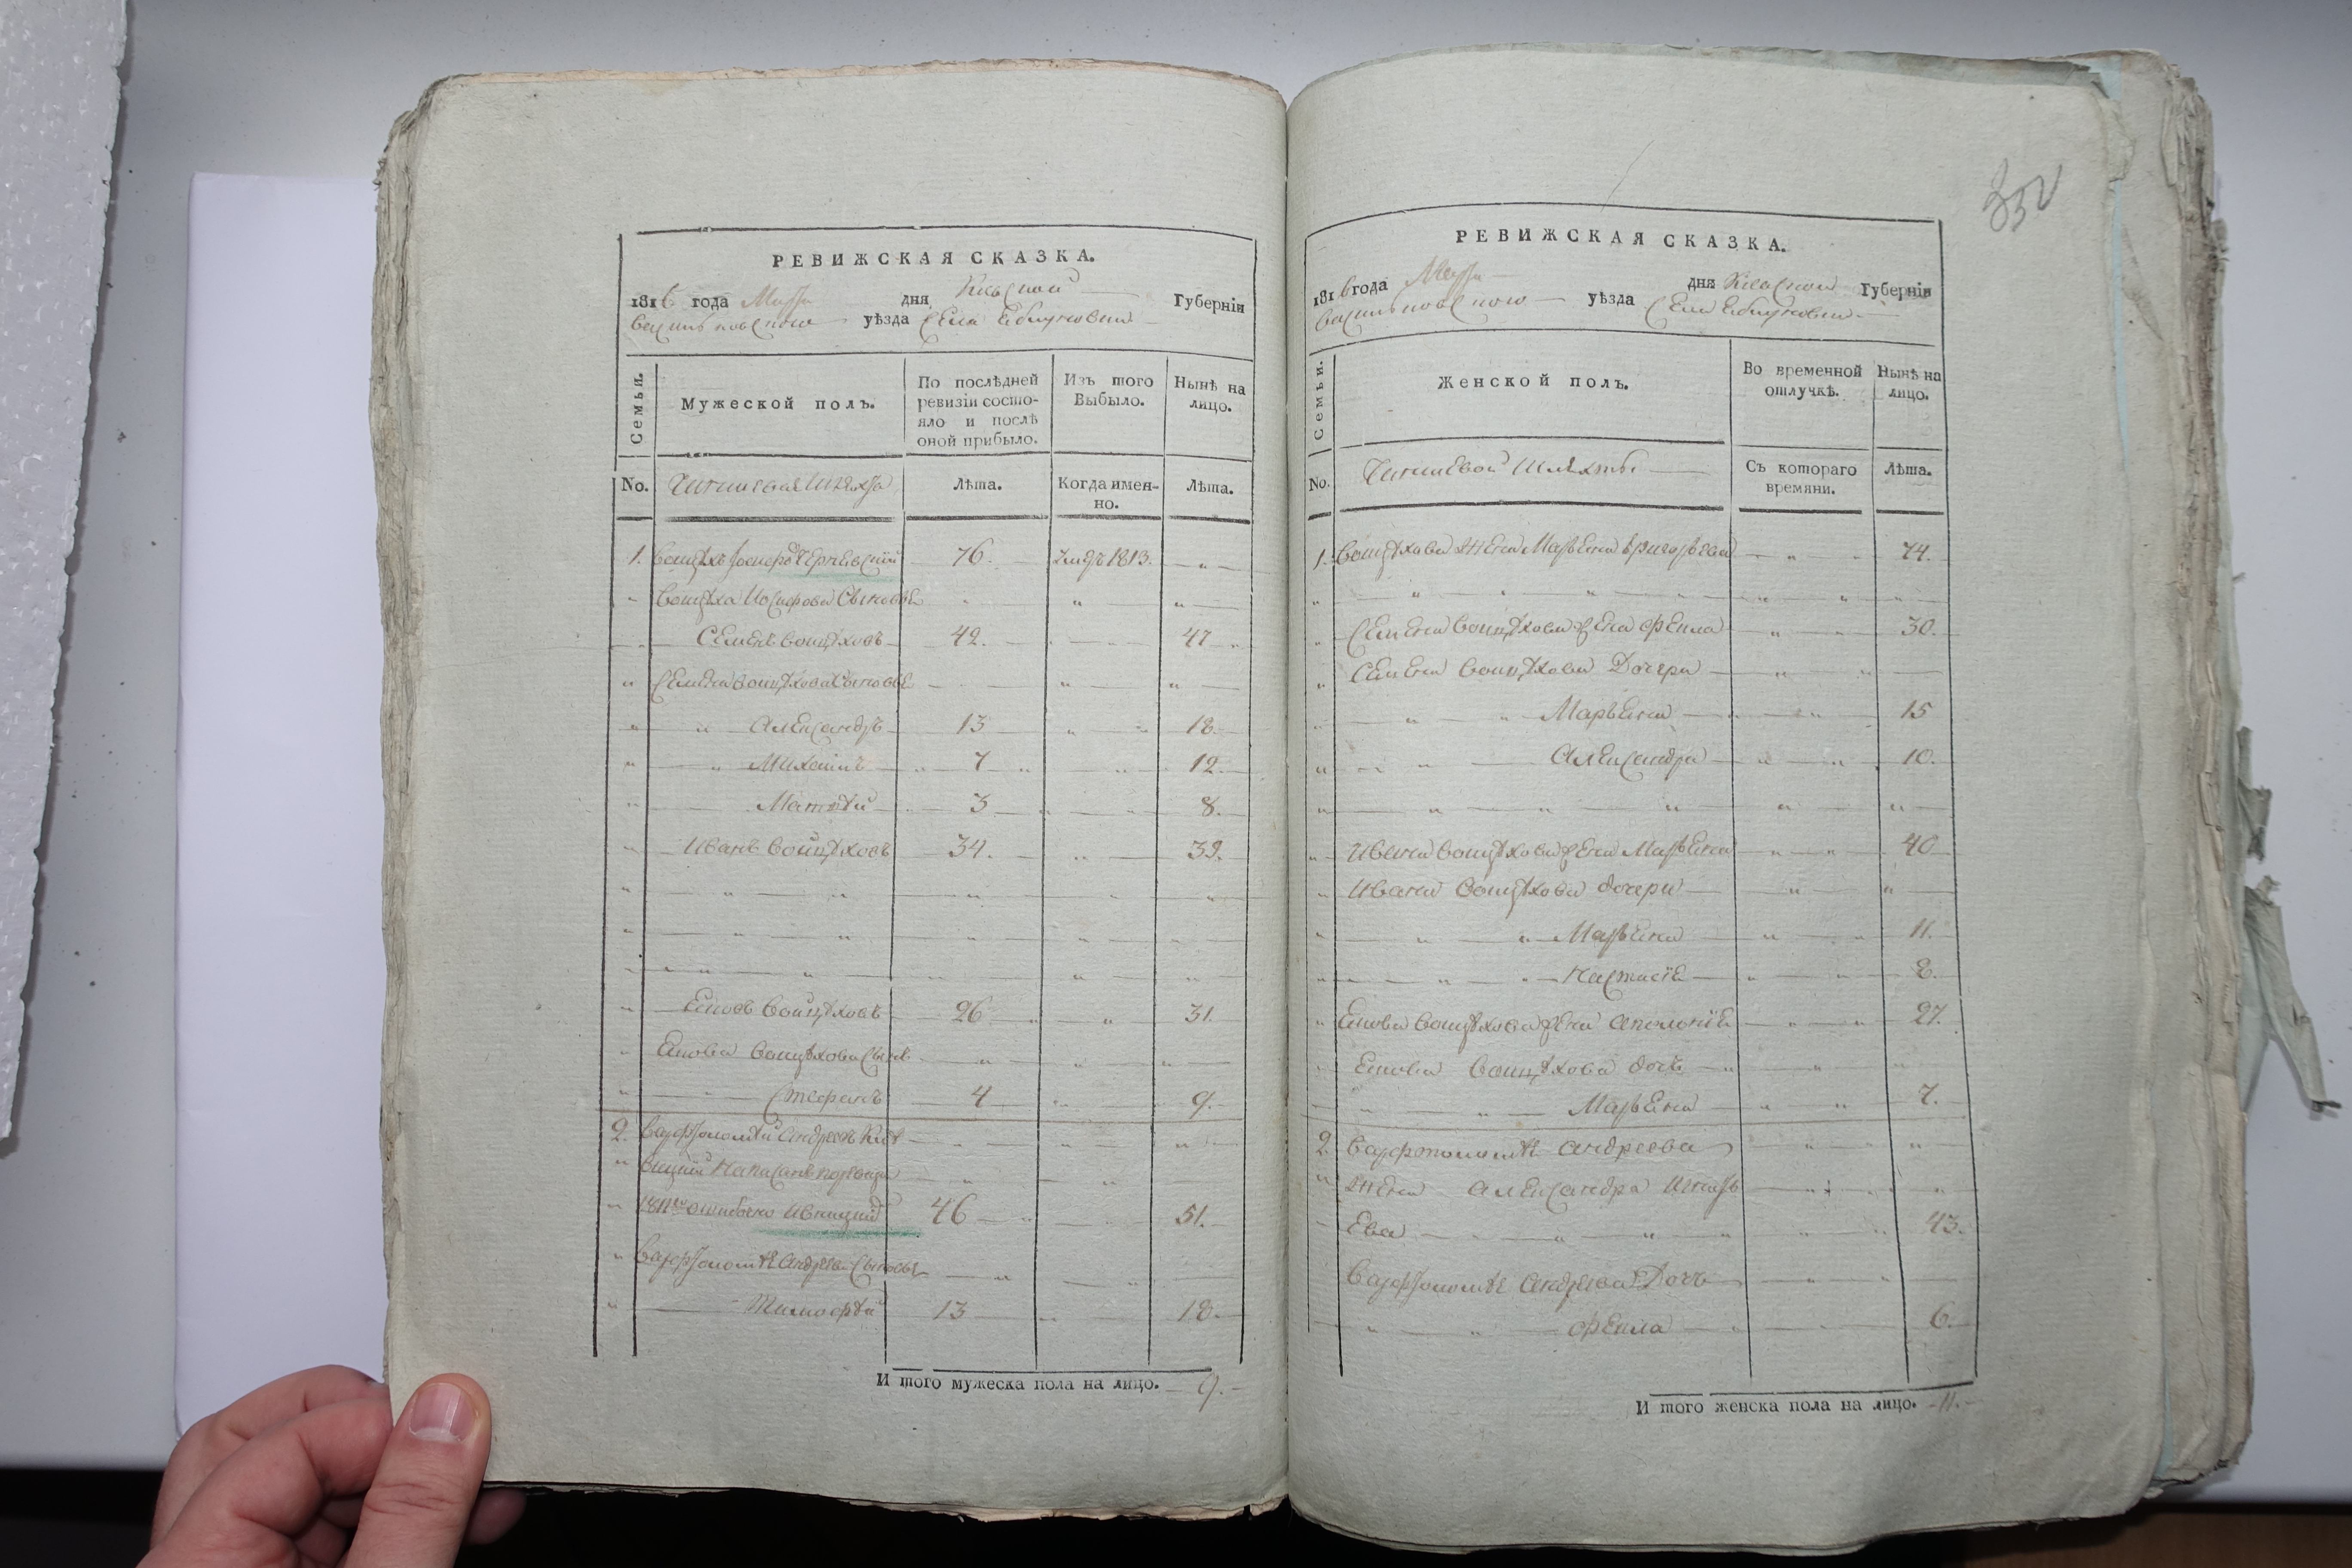 332
РЕВИЖСКАЯ СКАЗКА.
1816 года Марта дня Кіевской Губерніи
Васильковского уѣзда Села Яблуновки
Семьи.
Мужеской полъ.
По послѣдней ревизіи состояло и послѣ оной прибыло.
Изъ того Выбыло.
Нынѣ на лицо.
No. Чиншевая Шляхта Лѣта. Когда именно. Лѣта.
1. Войцѣхъ Іосифов 76. 1813.
Войцѣха Иосифова Сыновье
Семенъ Войцѣховъ 42. 47
Семена Войцѣхова Сыновье
Александръ 13 18.
Михаилъ 7 12.
Матвѣй 3 8.
Иванъ Войцѣховъ 34. 39.
Яковъ Войцѣховъ 26 31.
Якова Войцѣхова Сынъ
Стефанъ 4 9.
2. Варфоломѣй Андреевъ
написанъ
ошибочно Ивницкий 46 51.
Варфоломѣя Андреева Сыновья
Тимофѣй 13 18.
И того мужеска пола на лицо. 9.
РЕВИЖСКАЯ СКАЗКА.
1816 года Марта дня Кіевской Губерніи
Васильковского уѣзда Села Яблуновки
Семьи.
Женской полъ.
Во временной отлучкѣ.
Нынѣ на лицо.
No. Чиншевой Шляхты Съ котораго времяни. Лѣта.
1. Войцѣхова Жена Марьяна Григорьева 74.
Семена Войцѣхова жена Фекла 30.
Семена Войцѣхова Дочери
Марьяна 15
Александра 10.
Ивана Войцѣхова жена Марьяна 40
Ивана Войцѣхова дочери
Марьяна 11.
Настасія 8.
Якова Войцѣхова жена Аполонія 27.
Якова Войцѣхова дочь
Марьяна 7.
2. Варфоломѣя Андреева
Жена Александра
Ева 43.
Варфоломѣя Андреева Дочь
Фекла 6.
И того женска пола на лицо. 11.